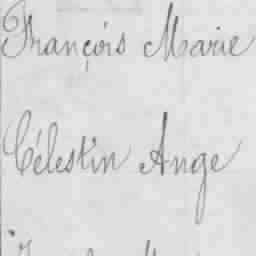 François Marie
Célestin Ange